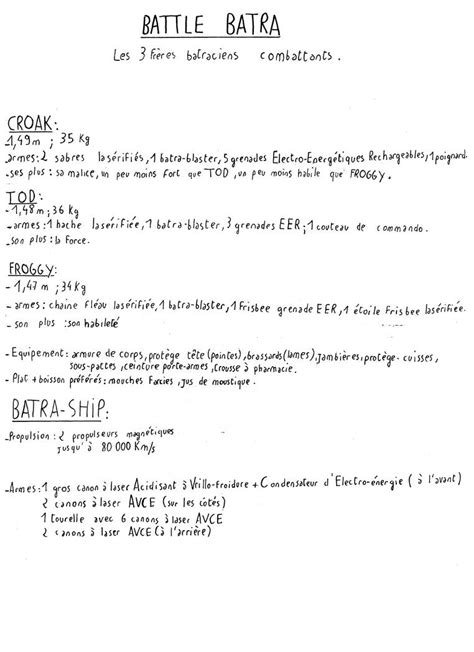 BATTLE BATRA
Les 3 frères batraciens combattants.
CROAK:
1,49m ; 35 Kg
-armes: 2 sabres lasérifiés, 1 batra-blaster, 5 grenades Electro-Energétiques Rechargeables, 1 poignard.
-ses plus : sa malice, un peu moins fort que TOD, un peu moins habile que FROGGY.
TOD:
-1,48m ; 36 Kg
-armes: 1 hache lasérifiée, 1 batra-blaster, 3 grenades EER ; 1 couteau de commando.
-son plus : la force.
FROGGY:
-1,47m ; 34Kg
-armes: chaîne fléau lasérifiée, 1 batra-blaster, 1 Frisbee grenade EER, 1 étoile Frisbee lasérifiée.
- son plus : son habileté
-Equipement : armure de corps, protège tête (pointes), brassards (lames), jambières, protège-cuisses,
sous-pattes, ceinture porte-armes, trousse à pharmacie.
-Plat + boisson préférés : mouches farcies, jus de moustique.
BATRA-SHIP:
-Propulsion : 2 propulseurs magnétiques
jusqu'à 80 000 Km/s
-Armes : 1 gros canon à laser Acidisant à Vrillo-froidure + Condensateur d'Electro-énergie (à l'avant)
2 canons à laser AVCE (sur les côtés)
1 tourelle avec 6 canons à laser AVCE
2 canons à laser AVCE (à l'arrière)